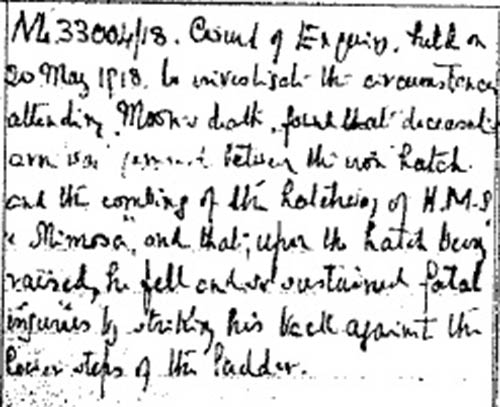 NL 33004/18. Court of Enquiry, held on
20 May 1918, to investigate the circumstances
attending Moon's death, found that deceased's
arm was jammed between the iron hatch
and the combing of the hatchway of H.M.S
"Mimosa", and that, upon the hatch being
raised, he fell and so sustained fatal
injuries by striking his back against the
lower steps of the ladder.